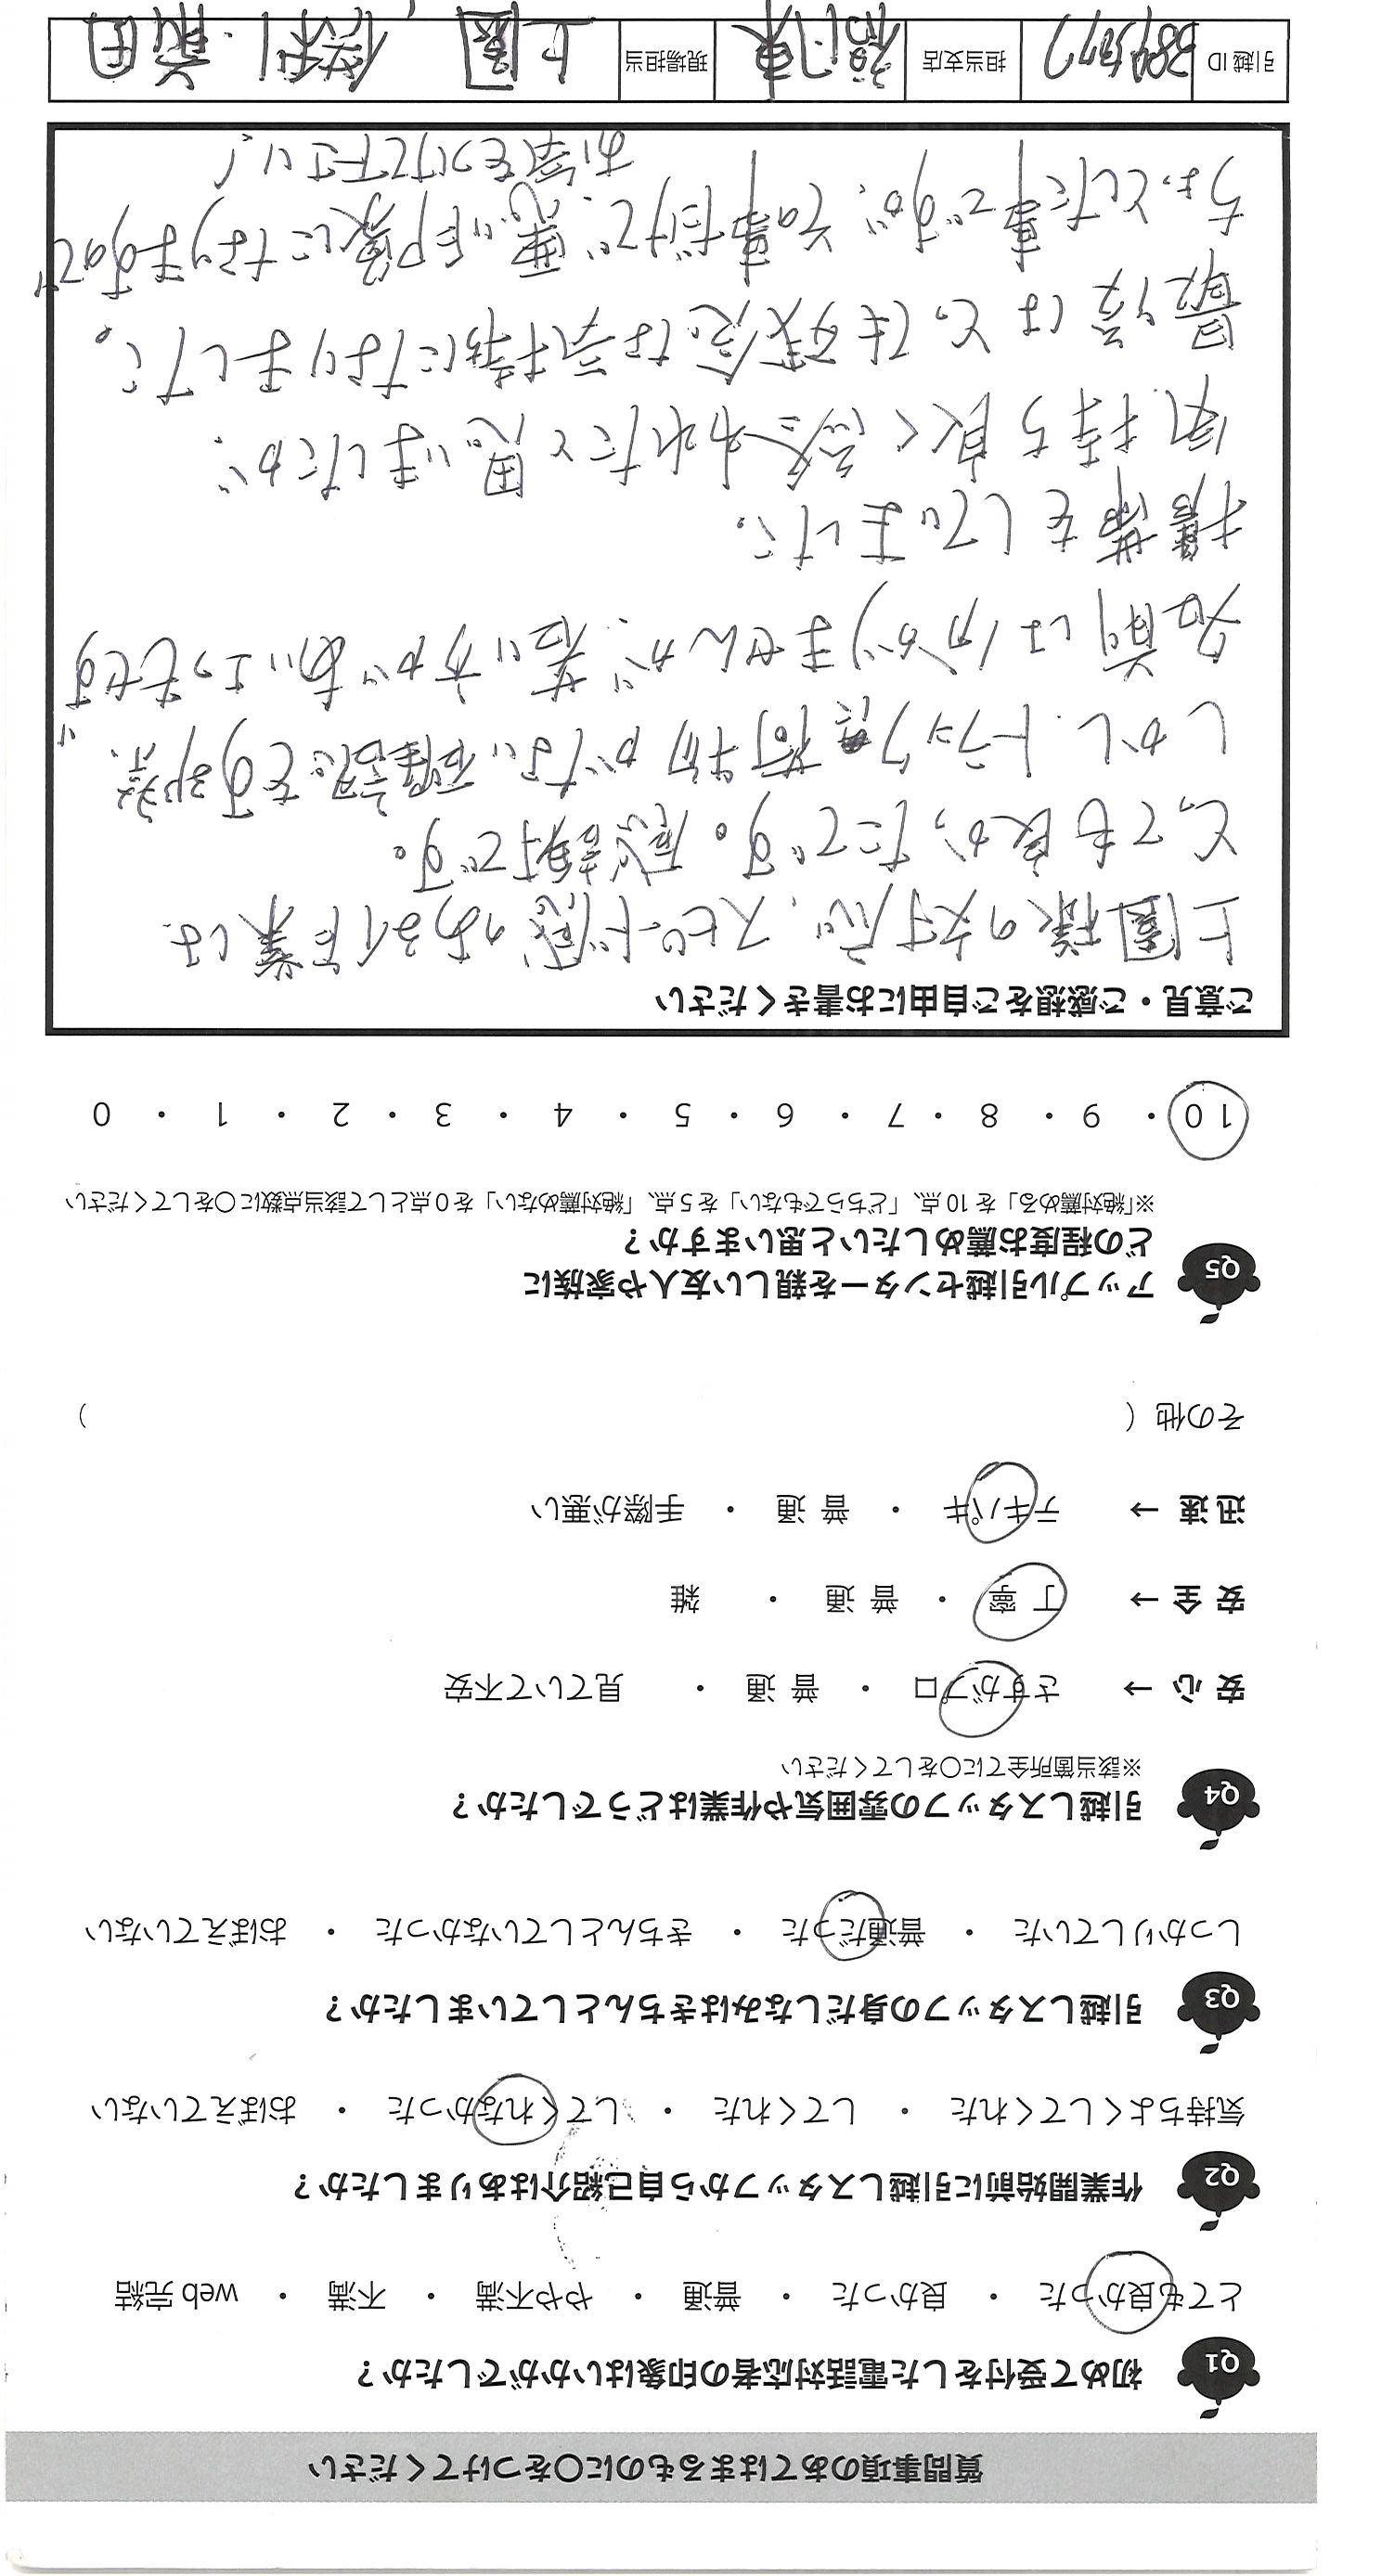 質問事項のあてはまるものに〇をつけてください
Q1 初めて受付をした電話対応者の印象はいかがでしたか？
とても良かった ・ 良かった ・ 普通 ・ やや不満 ・ 不満 ・ web 完結
Q2 作業開始前に引越しスタッフから自己紹介はありましたか？
気持ちよくしてくれた ・ してくれた ・ してくれなかった ・ おぼえていない
Q3 引越しスタッフの身だしなみはきちんとしていましたか？
しっかりしていた ・ 普通だった ・ きちんとしていなかった ・ おぼえていない
Q4 引越しスタッフの雰囲気や作業はどうでしたか？
※該当箇所全てに〇をしてください
安 心 → さすがプロ ・ 普 通 ・ 見ていて不安
安 全 → 丁 寧 ・ 普 通 ・ 雑
迅 速 → テキパキ ・ 普 通 ・ 手際が悪い
その他（ ）
Q5 アップル引越センターを親しい友人や家族に
どの程度お薦めしたいと思いますか？
※「絶対薦める」を 10 点、「どちらでもない」を 5 点、「絶対薦めない」を 0 点として該当点数に〇をしてください
10 ・ 9 ・ 8 ・ 7 ・ 6 ・ 5 ・ 4 ・ 3 ・ 2 ・ 1 ・ 0
ご意見・ご感想をご自由にお書きください
上園様の対応、スピード感のある作業は
とても良かったです。感謝です。
しかし、トラックに荷物がない確認をする際、
名前は分かりませんが、若い方があいさつもせず
携帯をしていました。
気持ち良く終われたと思いましたが、
最後はとっても残念な気持ちになりました。
ちょっとした事ですが、その事だけで、悪い印象になりますので
お気をつけて下さい！
引越 ID 担当支店 現場担当 上園